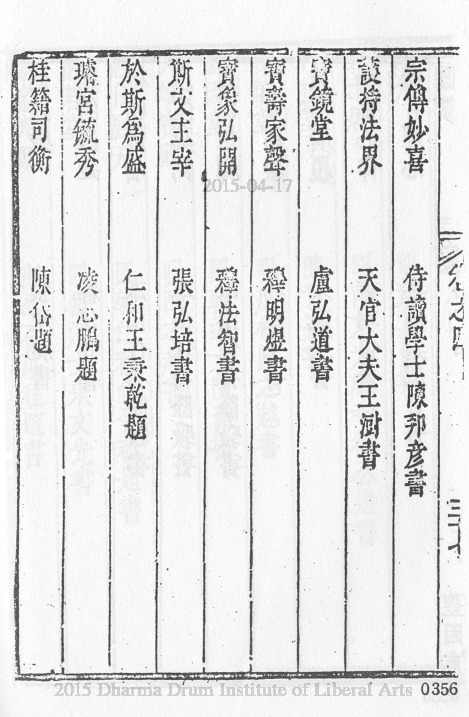 宗傳妙喜 侍讀學士陳邦彥書
護持法界 天官大夫王澍書
寶鏡堂 盧弘道書
寶壽家聲 釋明煜書
寶象弘開 釋法智書
斯文主宰 張弘培書
於斯爲盛 仁和王秉乾題
璿宮毓秀 凌志鵬題
桂籍司衡 陳岱題
2015-04-17
2015 Dharma Drum Institute of Liberal Arts 0356